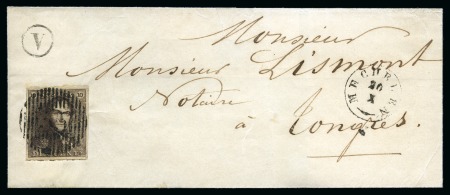 V
Monsieur
Monsieur Lismont
Notaire
à Tongres.
MECHELEN
20
X